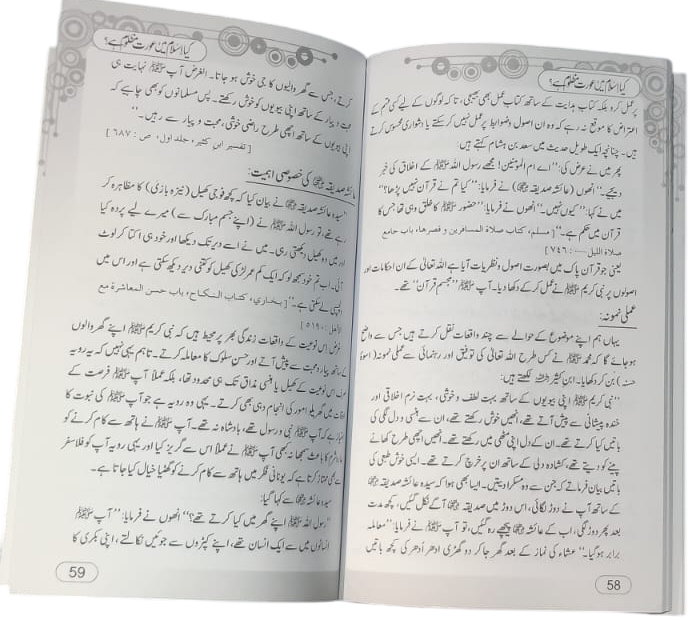 کیا اسلام میں عورت مظلوم ہے؟
پر عمل کرو بلکہ کتاب ہدایت کے ساتھ کتاب عمل بھی بھیجی، تاکہ لوگوں کے لیے کسی قسم کے
اعتراض کا موقع نہ رہے کہ وہ ان اصول و ضوابط پر عمل نہیں کر سکتے یا دشواری محسوس کرتے
ہیں۔ چنانچہ ایک طویل حدیث میں سعد بن ہشام کہتے ہیں:
پھر میں نے عرض کی: ’’اے ام المومنین! مجھے رسول اللہ ﷺ کے اخلاق کی خبر
دیجیے۔‘‘ انھوں (عائشہ صدیقہ رضی اللہ عنہا) نے فرمایا: ’’کیا تم نے قرآن نہیں پڑھا؟‘‘
میں نے کہا: ’’کیوں نہیں۔‘‘ انھوں نے فرمایا: ’’حضور ﷺ کا خلق وہی تھا جس کا
قرآن میں حکم ہے۔‘‘ [مسلم، کتاب صلاة المسافرين و قصرها، باب جامع
صلاة الليل ..... : ٧٤٦]
یعنی جو قرآن پاک میں بصورت اصول و نظریات آیا ہے اللہ تعالیٰ کے ان احکامات اور
اصولوں پر نبی کریم ﷺ نے عمل کر کے دکھا دیا۔ آپ ﷺ ’’مجسم قرآن‘‘ تھے۔
عملی نمونہ:
یہاں ہم اپنے موضوع کے حوالے سے چند واقعات نقل کرتے ہیں جس سے واضح
ہو جائے گا کہ محمد ﷺ نے کس طرح اللہ تعالیٰ کی توفیق اور رہنمائی سے عملی نمونہ (اسوۂ
حسنہ) بن کر دکھایا۔ ابن کثیر رحمہ اللہ لکھتے ہیں:
’’نبی کریم ﷺ اپنی بیویوں کے ساتھ بہت لطف و خوشی، بہت نرم اخلاقی اور
خندہ پیشانی سے پیش آتے تھے، انھیں خوش رکھتے تھے، ان سے ہنسی و دل لگی کی
باتیں کیا کرتے تھے۔ ان کے دل اپنی مٹھی میں رکھتے تھے۔ انھیں اچھی طرح کھانے
پینے کو دیتے تھے، کشادہ دلی کے ساتھ ان پر خرچ کرتے تھے۔ ایسی خوش طبعی کی
باتیں بیان فرماتے کہ جن سے وہ مسکرا دیتیں۔ ایسا بھی ہوا کہ سیدہ عائشہ صدیقہ رضی اللہ عنہا
کے ساتھ آپ نے دوڑ لگائی، اس دوڑ میں صدیقہ رضی اللہ عنہا آگے نکل گئیں، کچھ مدت
بعد پھر دوڑ لگی، اب کے عائشہ رضی اللہ عنہا پیچھے رہ گئیں، تو آپ ﷺ نے فرمایا: ’’معاملہ
برابر ہو گیا۔‘‘ عشاء کی نماز کے بعد گھر جا کر دو گھڑی ادھر اُدھر کی کچھ باتیں
58
کیا اسلام میں عورت مظلوم ہے؟
کرتے، جس سے گھر والیوں کا جی خوش ہو جاتا۔ الغرض آپ ﷺ نہایت ہی
محبت و پیار کے ساتھ اپنی بیویوں کو خوش رکھتے۔ پس مسلمانوں کو بھی چاہیے کہ
اپنی بیویوں کے ساتھ اچھی طرح راضی خوشی، محبت و پیار سے رہیں۔‘‘
[تفسير ابن كثير، جلد اول، ص : ٦٨٧]
عائشہ صدیقہ رضی اللہ عنہا کی خصوصی اہمیت:
’’سیدہ عائشہ صدیقہ رضی اللہ عنہا نے بیان کیا کہ کچھ فوجی کھیل (نیزہ بازی) کا مظاہرہ کر
رہے تھے، تو رسول اللہ ﷺ نے (اپنے جسم مبارک سے) میرے لیے پردہ کیا
اور میں وہ کھیل دیکھتی رہی۔ میں نے اسے دیر تک دیکھا اور خود ہی اکتا کر لوٹ
آئی۔ اب تم خود سمجھ لو کہ ایک کم عمر لڑکی کھیل کو کتنی دیر دیکھ سکتی ہے اور اس میں
دلچسپی لے سکتی ہے۔‘‘ [بخاري، کتاب النکاح، باب حسن المعاشرة مع
الأهل : ٥١٩٠]
غرض اس نوعیت کے واقعات زندگی بھر پر محیط ہیں کہ نبی کریم ﷺ اپنے گھر والوں
کے ساتھ پیار و محبت سے پیش آتے اور حسن سلوک کا معاملہ کرتے۔ تاہم یہی نہیں کہ یہ رویہ
صرف اس نوعیت کے کھیل یا ہنسی مذاق تک ہی محدود تھا، بلکہ عملاً آپ ﷺ فرصت کے
اوقات میں گھریلو امور کی انجام دہی بھی کرتے۔ یہی وہ رویہ ہے جو آپ ﷺ کی نبوت کا
ہے کہ آپ ﷺ نبی و رسول تھے، بادشاہ نہ تھے۔ آپ ﷺ نے ہاتھ سے کام کرنے کو
کا باعث سمجھا نہ کبھی آپ ﷺ نے عملاً اس سے گریز کیا اور یہی رویہ آپ کو فلاسفر
سے بھی ممتاز کرتا ہے کہ یونانی فکر میں ہاتھ سے کام کرنے کو گھٹیا خیال کیا جاتا ہے۔
سیدہ عائشہ رضی اللہ عنہا سے کہا گیا:
’’رسول اللہ ﷺ اپنے گھر میں کیا کرتے تھے؟‘‘ انھوں نے فرمایا: ’’آپ ﷺ
انسانوں میں سے ایک انسان تھے، اپنے کپڑوں سے جوئیں نکالتے، اپنی بکری کا
59